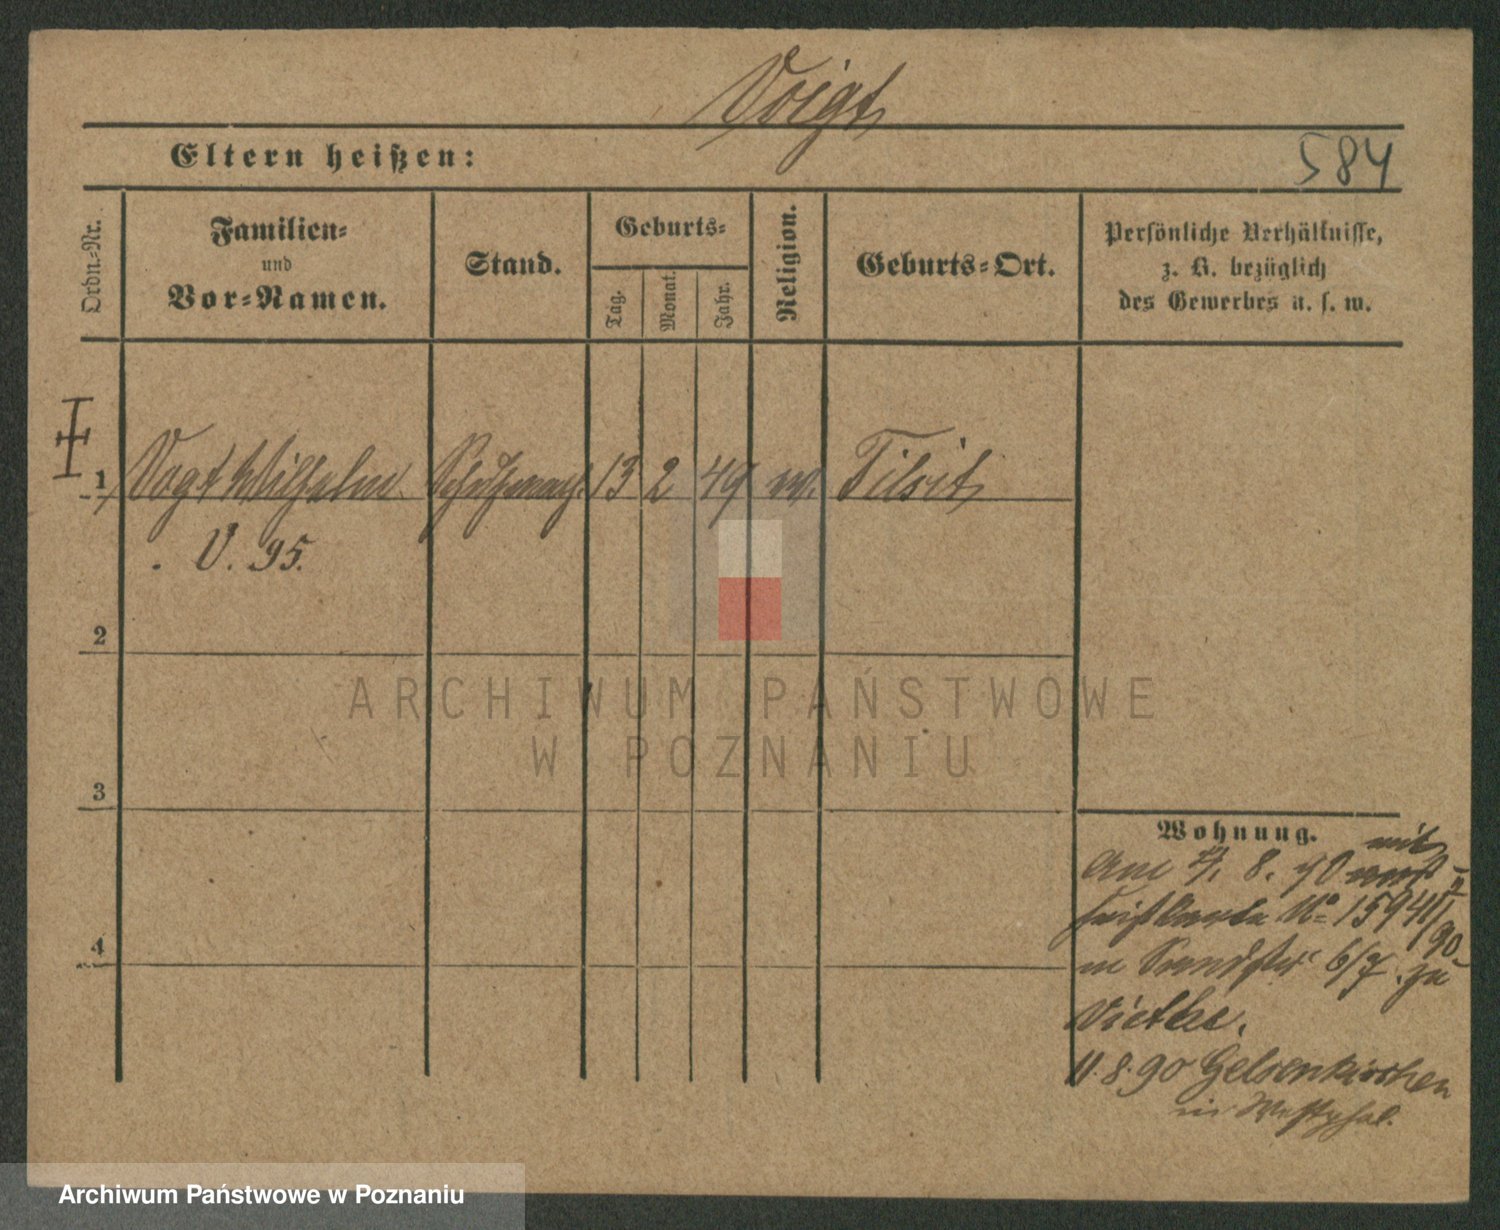 Voigt
Eltern heißen:
584
Ordn.-Nr.
Familien-
und
Vor-Namen.
Stand.
Geburts-
Tag.
Monat.
Jahr.
Religion.
Geburts-Ort.
Persönliche Verhältnisse,
z. B. bezüglich
des Gewerbes u. s. w.
1 Vogt Wilhelm Schuhmach. 13 2 49 ev. Tilsit
V. 95.
2
3
4
Wohnung.
mit
Am 4. 8. 90
No 1594
90
6/7. zu
11. 8. 90 Gelsenkirchen
in Westphal.
ARCHIWUM PAŃSTWOWE
W POZNANIU
Archiwum Państwowe w Poznaniu